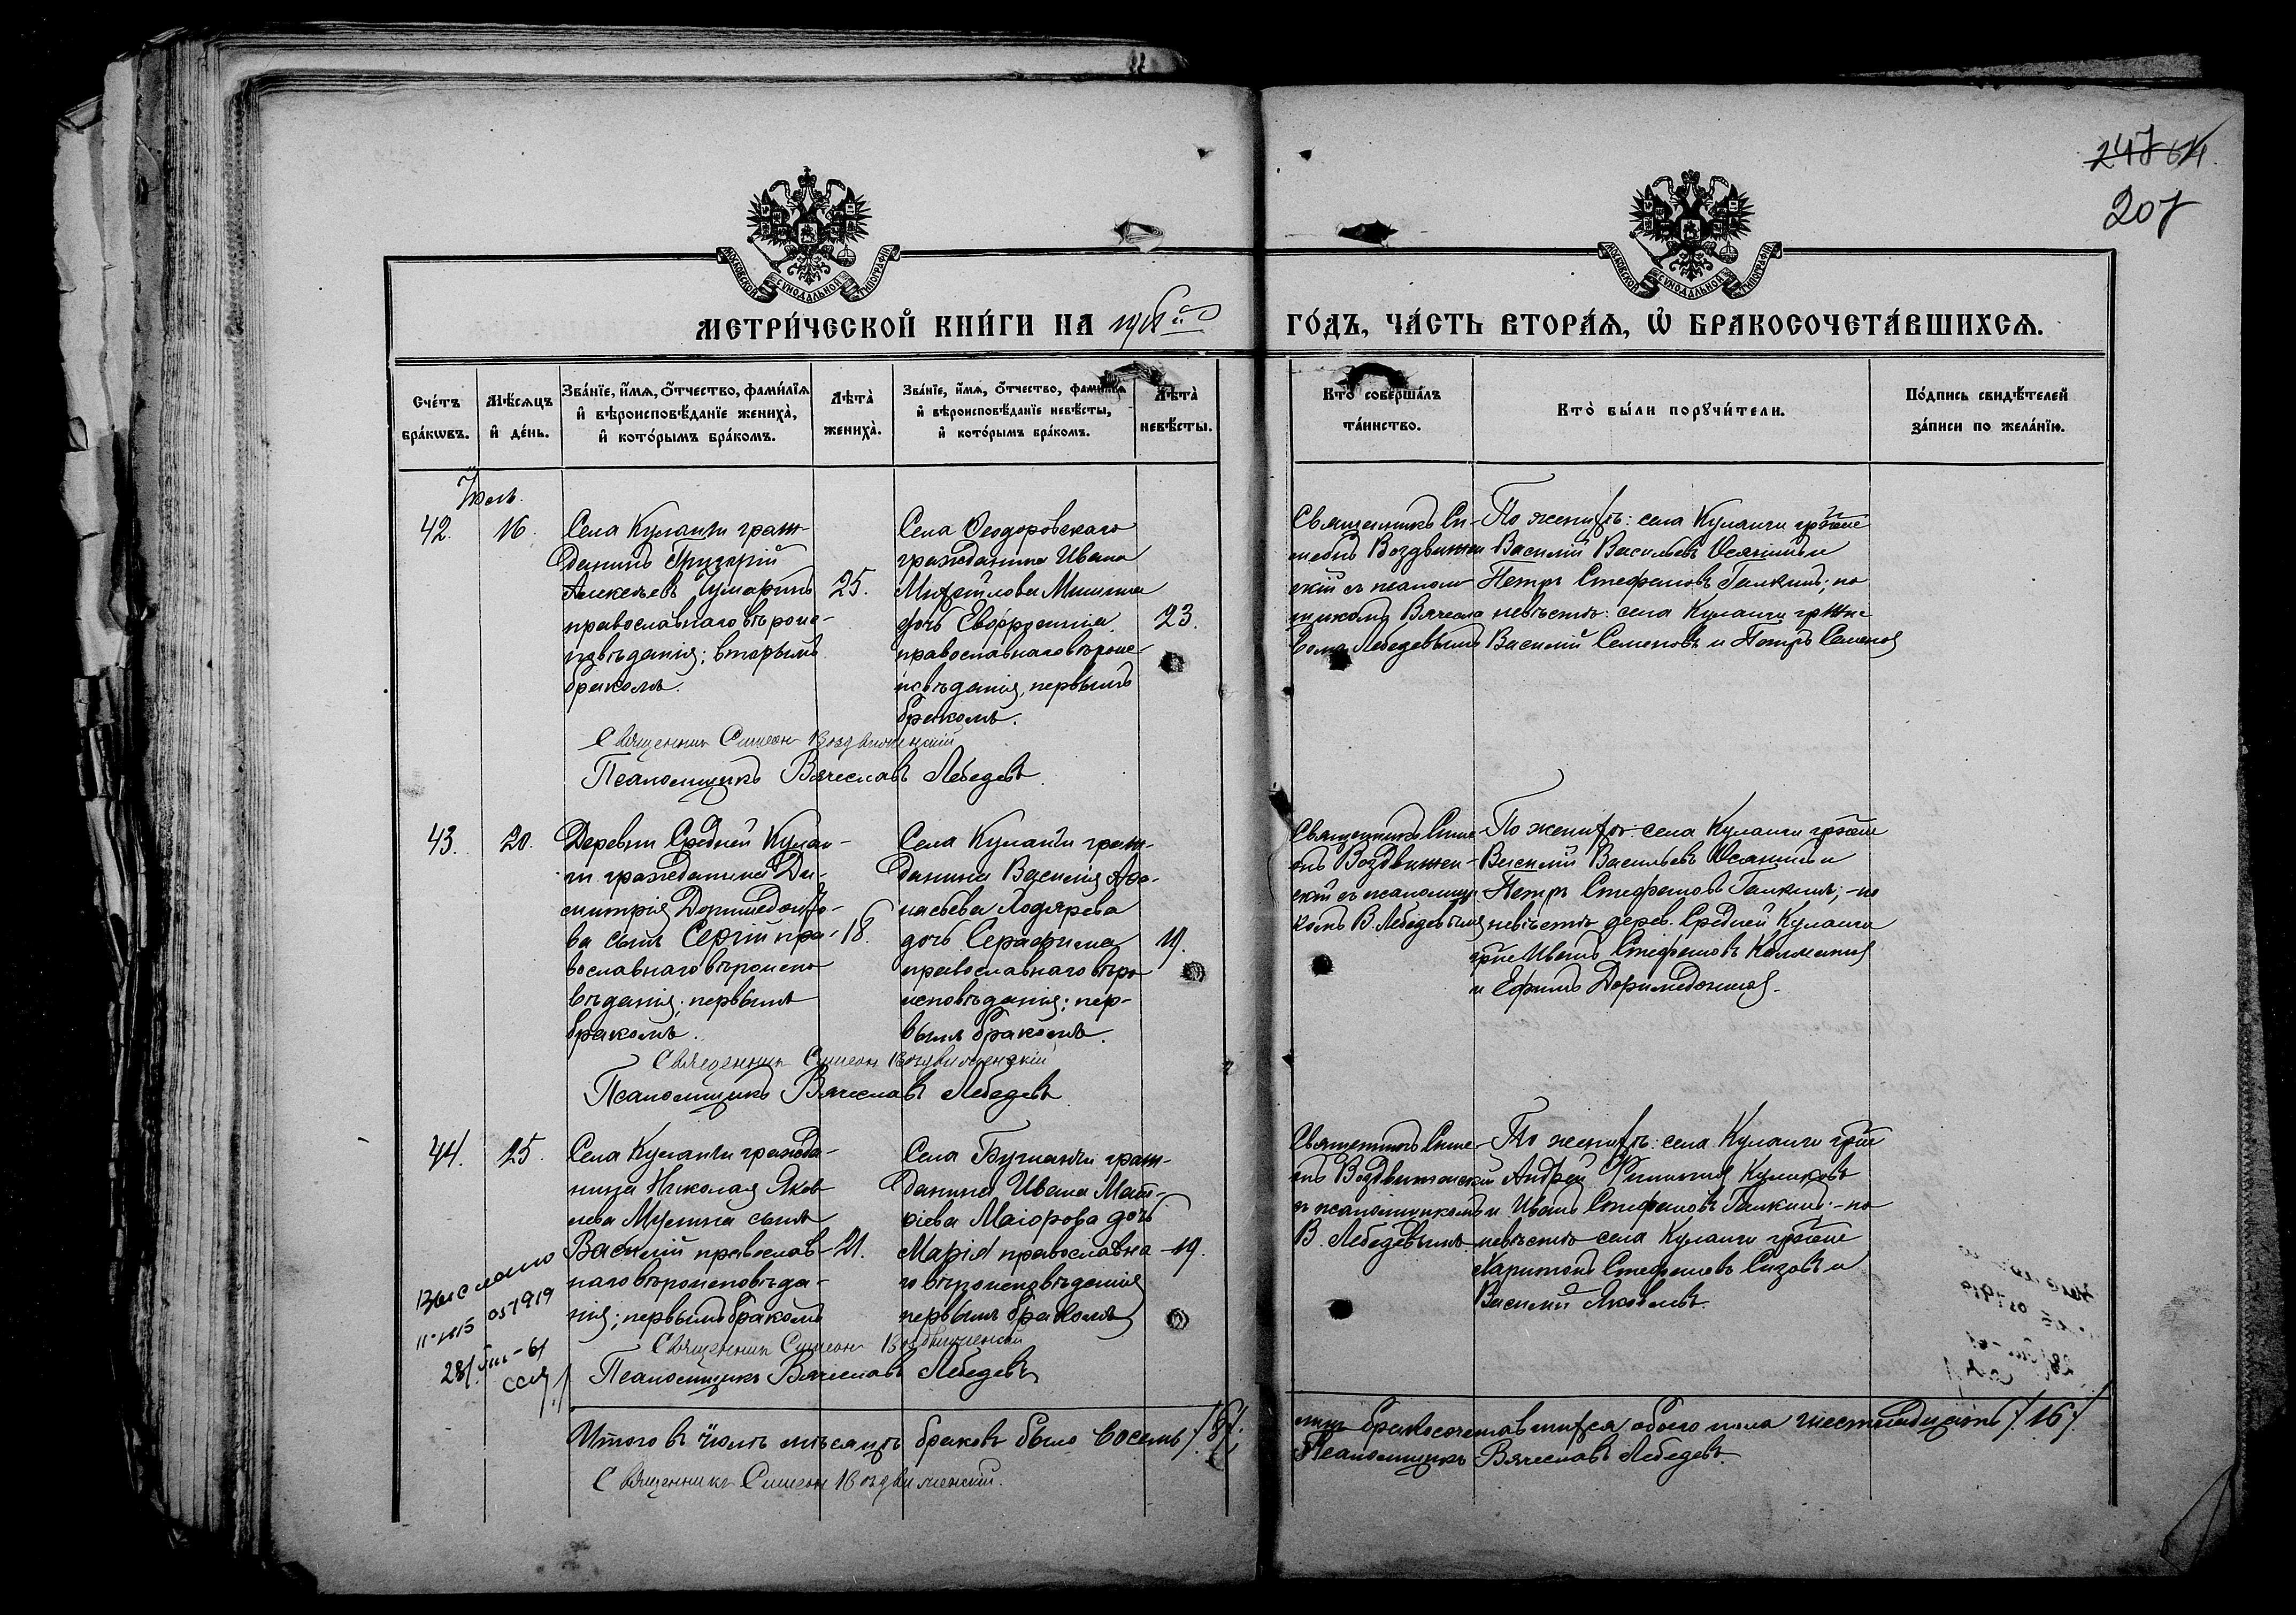 247 64.
207
МОСКОВСКОЙ СѴНОДАЛЬНОЙ ТИПОГРАФІИ
МОСКОВСКОЙ СѴНОДАЛЬНОЙ ТИПОГРАФІИ
МЕТРИ́ЧЕСКОЙ КНИ́ГИ НА 1918й
ГО́ДЪ, ЧА́СТЬ ВТОРА́Ѧ, Ѡ҆ БРАКОСОЧЕТА́ВШИХСѦ.
Сче́тъ бра́кѡвъ.
Мѣ́сѧцъ и҆ де́нь.
Зва́нїе, и҆́мѧ, ѻ҆́тчество, фами́лїѧ и҆ вѣроисповѣ́данїе жениха̀, и҆ кото́рымъ бра́комъ.
Лѣта̀ жениха̀.
Зва́нїе, и҆́мѧ, ѻ҆́тчество, фами́лїѧ и҆ вѣроисповѣ́данїе невѣ́сты, и҆ кото́рымъ бра́комъ.
Лѣта̀ невѣ́сты.
Кто̀ соверша́лъ та́инство.
Кто̀ бы́ли порꙋчи́тели.
По́дпись свидѣ́телей за́писи по жела́нїю.
Іюль.
42.
16.
Села Куланги граж-
данинъ
Алексѣевъ Чумаринъ
православнаго вѣроис-
повѣданія; вторымъ
бракомъ.
25.
Села Ѳеодоровскаго
гражданина Ивана
Михайлова Мишина
дочь Евфросинія
православнаго вѣроис-
повѣданія, первымъ
бракомъ.
23.
Священникъ Си-
меонъ Воздвижен
скій съ псалом
щикомъ Вячесла
вомъ Лебедевымъ
По женихѣ: села Куланги гр-не
Василій Васильевъ и
Петръ Стефановъ Галкинъ; по
невѣстѣ: села Куланги гр-не
Василій Семеновъ и Петръ Семенов
Священникъ Симеонъ Воздвиженскій
Псаломщикъ Вячеславъ Лебедевъ
43.
20.
Деревни Средней Кулан-
ги гражданина Ди-
митрія Доримедонто-
ва сынъ Сергій пра-
вославнаго вѣроиспо
вѣданія; первымъ
бракомъ.
18.
Села Куланги граж-
данина Василія Аѳа-
насьева
дочь Серафима
православнаго вѣро
исповѣданія; пер-
вымъ бракомъ.
19.
Священникъ Симе-
онъ Воздвижен-
скій съ псаломщи
комъ В. Лебедевымъ
По женихѣ: села Куланги гр-не
Василій Васильевъ и
Петръ Стефановъ Галкинъ; - по
невѣстѣ дерев. Средней Куланги
гр-не Иванъ Стефановъ
и Ефимъ
Священникъ Симеон Воздвиженскій
Псаломщикъ Вячеславъ Лебедевъ
44.
25.
Села Куланги гражда-
нина Николая Яков
лева Мулина сынъ
Василій православ-
наго вѣроисповѣда-
нія; первымъ бракомъ
21.
Села Бурнашева граж-
данина Ивана Мат-
ѳіева Маіорова дочь
Марія православна
го вѣроисповѣданія
первымъ бракомъ
19.
Священникъ Симе-
онъ Воздвиженскій
съ псаломщикомъ
В. Лебедевымъ
По женихѣ: села Куланги гр-не
Андрей Куликовъ
и Иванъ Стефановъ Галкинъ - по
невѣстѣ села Куланги гр-не
Харитонъ Стефановъ Сизовъ и
Василій Яковлевъ.
Выслано
051919
28/VIII-61
Священник Симеон Воздвиженскій
Псаломщикъ Вячеславъ Лебедевъ
Итого въ іюлѣ мѣсяцѣ браковъ было восемь /8/.
лицъ бракосочетавшихся обоего пола шестнадцать /16/
Священникъ Симеон Воздвиженскій.
Псаломщикъ Вячеславъ Лебедевъ.